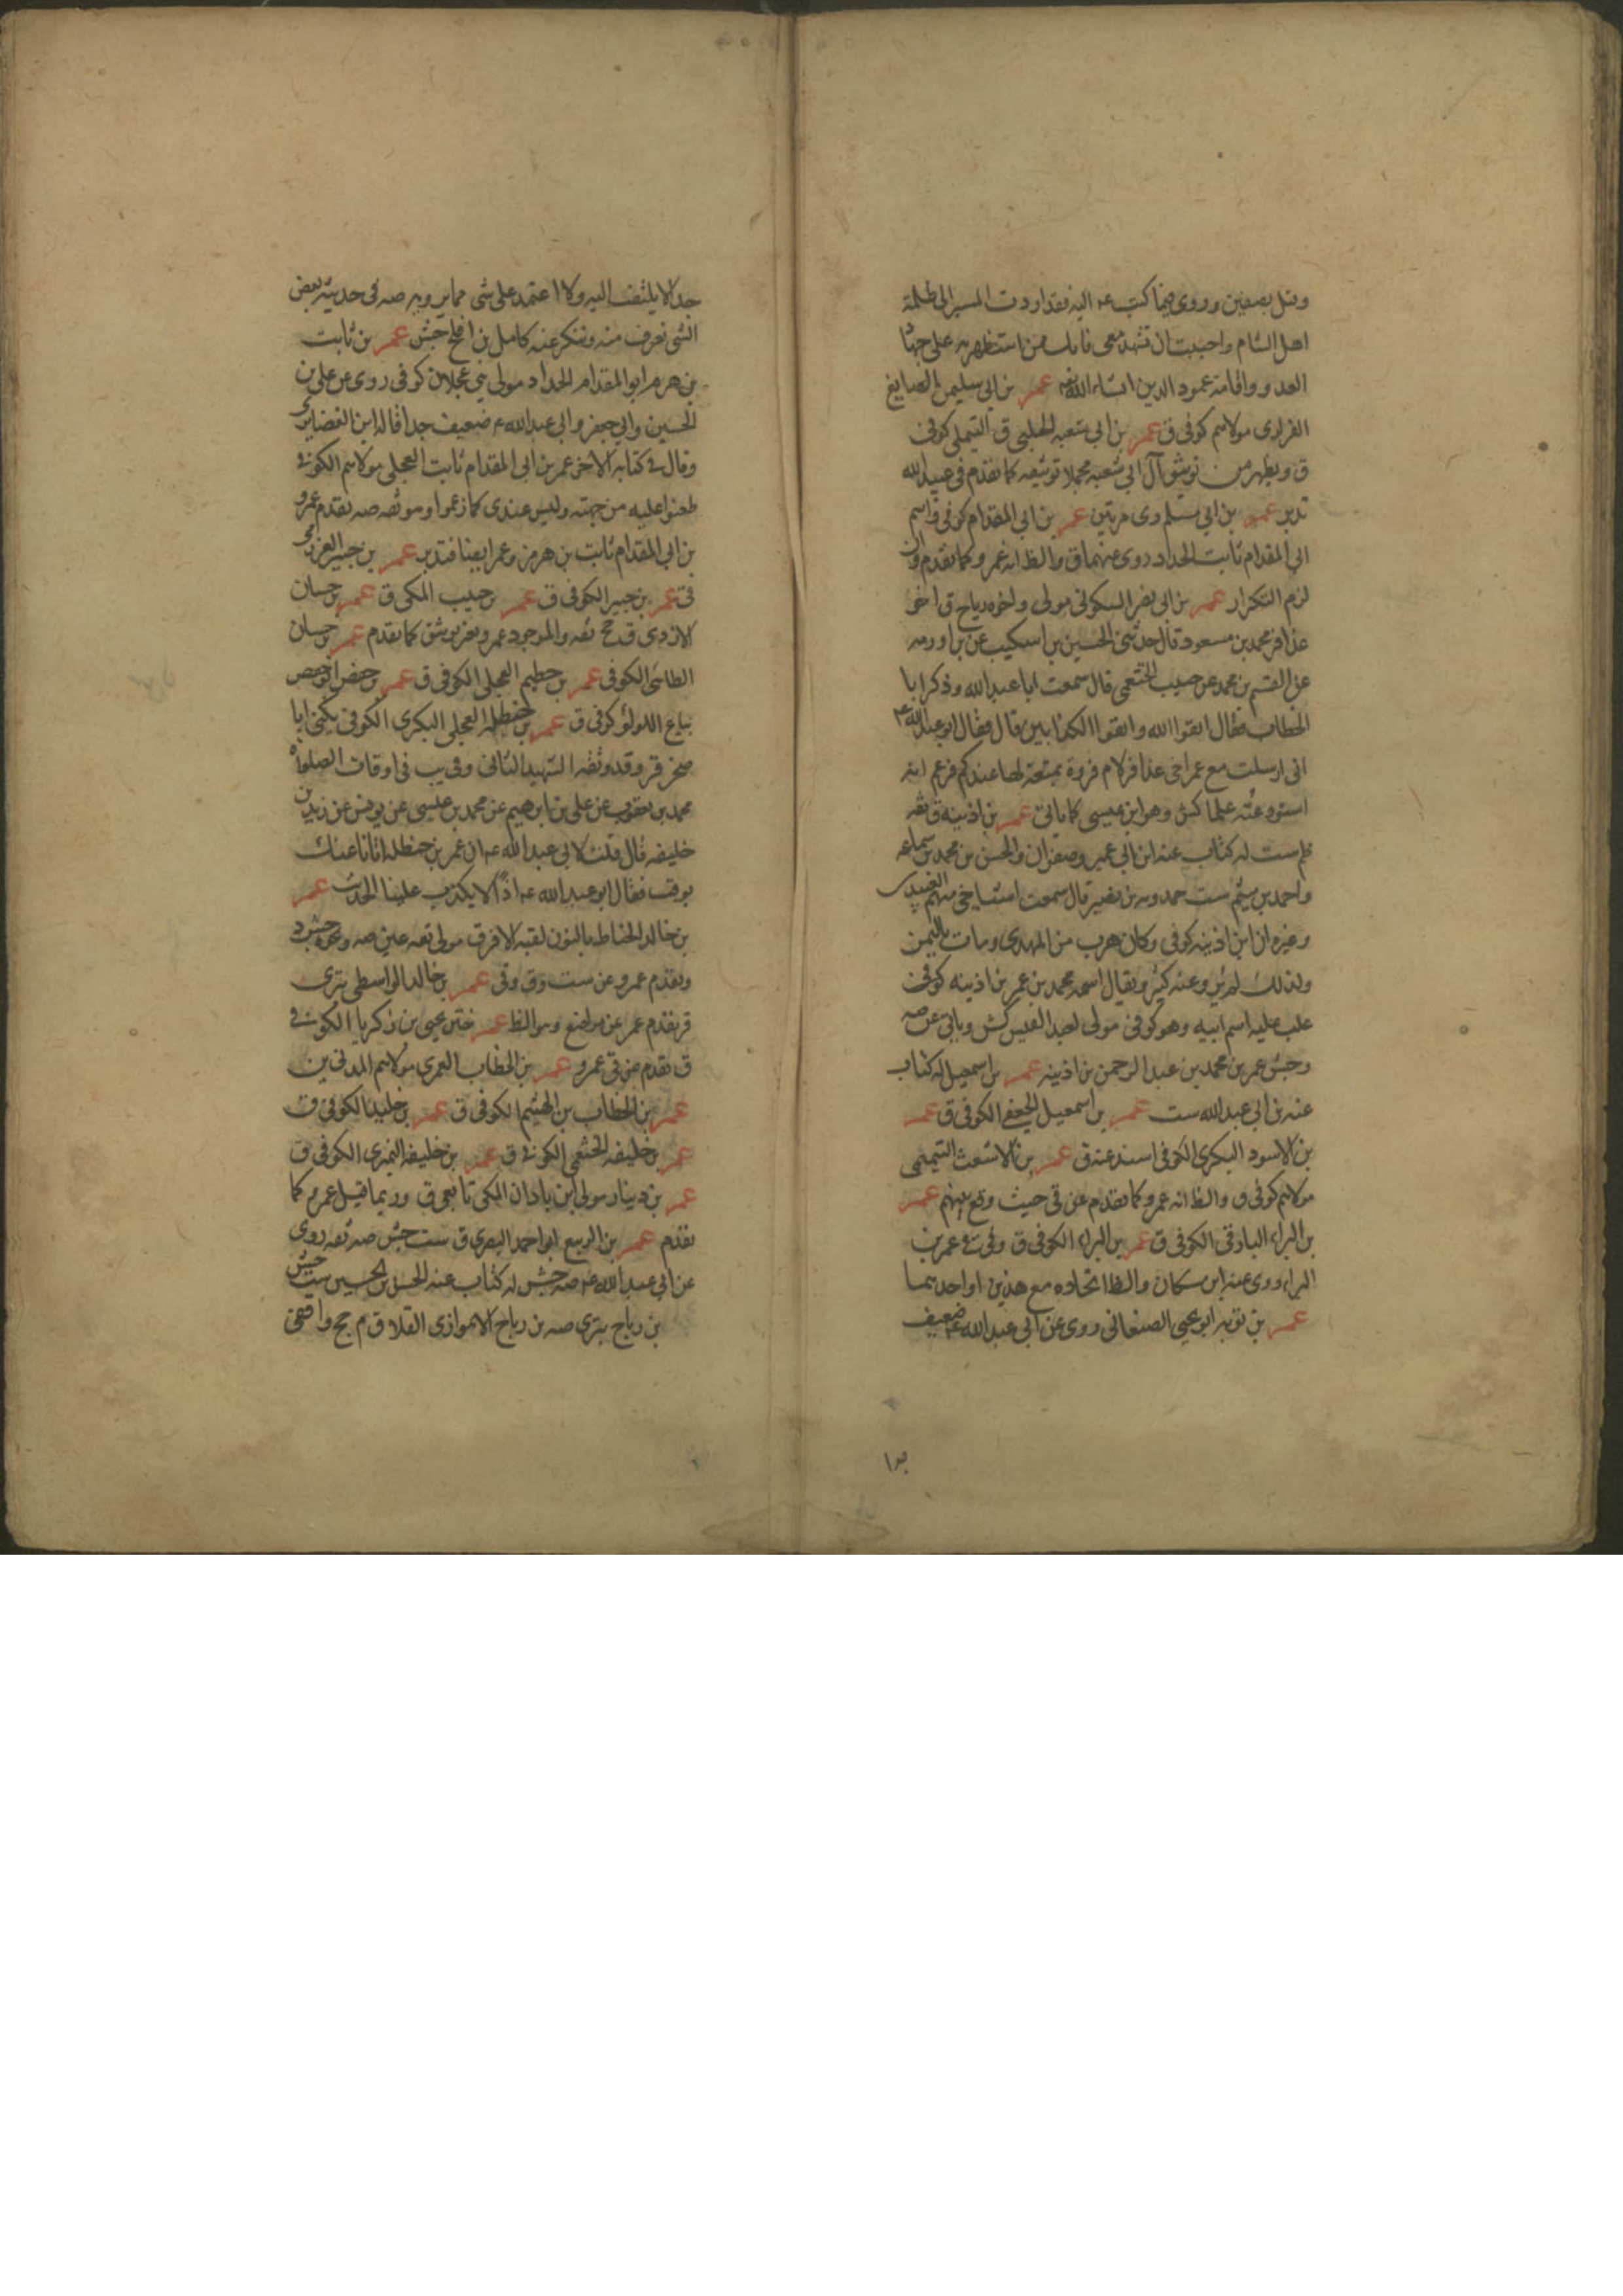 وقتل بصفين وروى فيما كتب ع اليه فقد اردت المسير الى ظلمة
اهل الشام واحببت ان تشهد معى فانك ممن استظهر به على جهاد
العدو واقامة عمود الدين انشاء الله عمر بن ابى سليمن الصايغ
الفزارى مولاهم كوفى ق عمر بن ابى شعبه الحلبى ق التيملى كوفى
ق ويظهر من توثيق آل ابى شعبه مجملا توثيقه كما تقدم فى عبيد الله
تدبر عمر بن ابى مسلم دى مرتين عمر بن ابى المقدام كوفى ق واسم
ابى المقدام ثابت الحداد روى عنهما ق والظ انه عمرو كما تقدم وان
لزم التكرار عمر بن ابى نصر السكونى مولى واخوه رياح ق اخو
عذافر محمد بن مسعود قال حدثنى الحسين بن اسكيب عن بن اورمه
عن القسم بن محمد عن حبيب الخثعمى قال سمعت ابا عبد الله وذكر ابا
الخطاب فقال اتقوا الله واتقوا الكذابين قال فقال ابو عبد الله ع
انى ارسلت مع عمر اخى عذافر لام فروة بمتعة لها عندكم فزعم انه
استودعته علما كش وهو ابن عيسى كما ياتى عمر بن اذينه ق ثقه
ظم ست له كتاب عنه ابن ابى عمير وصفوان والحسن بن محمد بن سماعه
واحمد بن ميثم ست حمدويه بن نصير قال سمعت اشياخى منهم العبيدى
وغيره ان ابن اذينه كوفى وكان هرب من المهدى ومات باليمن
ولذلك لم يرو عنه كثير ويقال اسمه محمد بن عمر بن اذينه كوفى
غلب عليه اسم ابيه وهو كوفى مولى لعبد القيس كش وياتى عن صه
وجش عمر بن محمد بن عبد الرحمن بن اذينه عمر بن اسمعيل له كتاب
عنه بن ابى عبد الله ست عمر بن اسمعيل الجعفى الكوفى ق عمر
بن الاسود البكرى الكوفى اسند عنه ق عمر بن الاشعث التيمى
مولاهم كوفى ق والظ انه عمرو كما تقدم عن قى حيث وقع بينهم عمر
بن البراء البارقى الكوفى ق عمر بن البراء الكوفى ق وفى عمر بن
البراء روى عنه ابن مسكان والظ اتحاده مع هذين او احدهما
عمر بن توبه ابو يحيى الصنعانى روى عن ابى عبد الله ع ضعيف
جدا لا يلتفت اليه ولا اعتمد على شى مما يرويه صه فى حديثه بعض
الشى نعرف منه وننكر عنه كامل بن افلح جش عمر بن ثابت
بن هرم ابو المقدام الحداد مولى بنى عجلان كوفى روى عن على بن
الحسين وابى جعفر وابى عبد الله ع ضعيف جدا قاله ابن الغضايرى
وقال فى كتابه الاخر عمر بن ابى المقدام ثابت العجلى مولاهم الكوفى
طعنوا عليه من جهته وليس عندى كما زعموا وهو ثقه صه تقدم عمرو
بن ابى المقدام ثابت بن هرمز وعمر ايضا فتدبر عمر بن جبير العزرمى
قى عمر بن جبير الكوفى ق عمر بن حبيب المكى ق عمر بن حسان
الازدى ق مح ثقه والموجود عمرو بغير توثيق كما تقدم عمر بن حسان
الطائى الكوفى عمر بن حطيم العجلى الكوفى ق عمر بن حفص ابو حفص
بياع اللولؤ كوفى ق عمر بن حنظله العجلى البكرى الكوفى يكنى ابا
صخر قر وقد وثقه الشهيد الثانى وفى يب فى اوقات الصلوة
محمد بن يعقوب عن على بن ابرهيم عن محمد بن عيسى عن يونس عن زيد بن
خليفه قال قلت لابى عبد الله ع ان عمر بن حنظله اتانا عنك
بوقت فقال ابو عبد الله ع اذًا لا يكذب علينا الحديث عمر
بن خالد الحناط بالنون لقبه الافرق مولى ثقه عين صه ونحوه جش د
وتقدم عمرو عن ست وق وقى عمر بن خالد الواسطى بترى
قر تقدم عمر عن مواضع وهو الظ عمر ختن يحيى بن زكريا الكوفى
ق تقدم عن قى عمرو عمر بن الخطاب العمرى مولاهم المدنى ين
عمر بن الخطاب بن الهيثم الكوفى ق عمر بن خليد الكوفى ق
عمر بن خليفه الخثعمى الكوفى ق عمر بن خليفه النميرى الكوفى ق
عمر بن دينار مولى ابن باذان المكى تابعى ق وربما قيل عمرو كما
تقدم عمر بن الربيع ابو احمد البصرى ق ست جش صه ثقه روى
عن ابى عبد الله ع صه جش له كتاب عنه الحسن بن الحسين ست جش
بن رياح بترى صه بن رياح الاهوازى القلا ق م جح واقفى